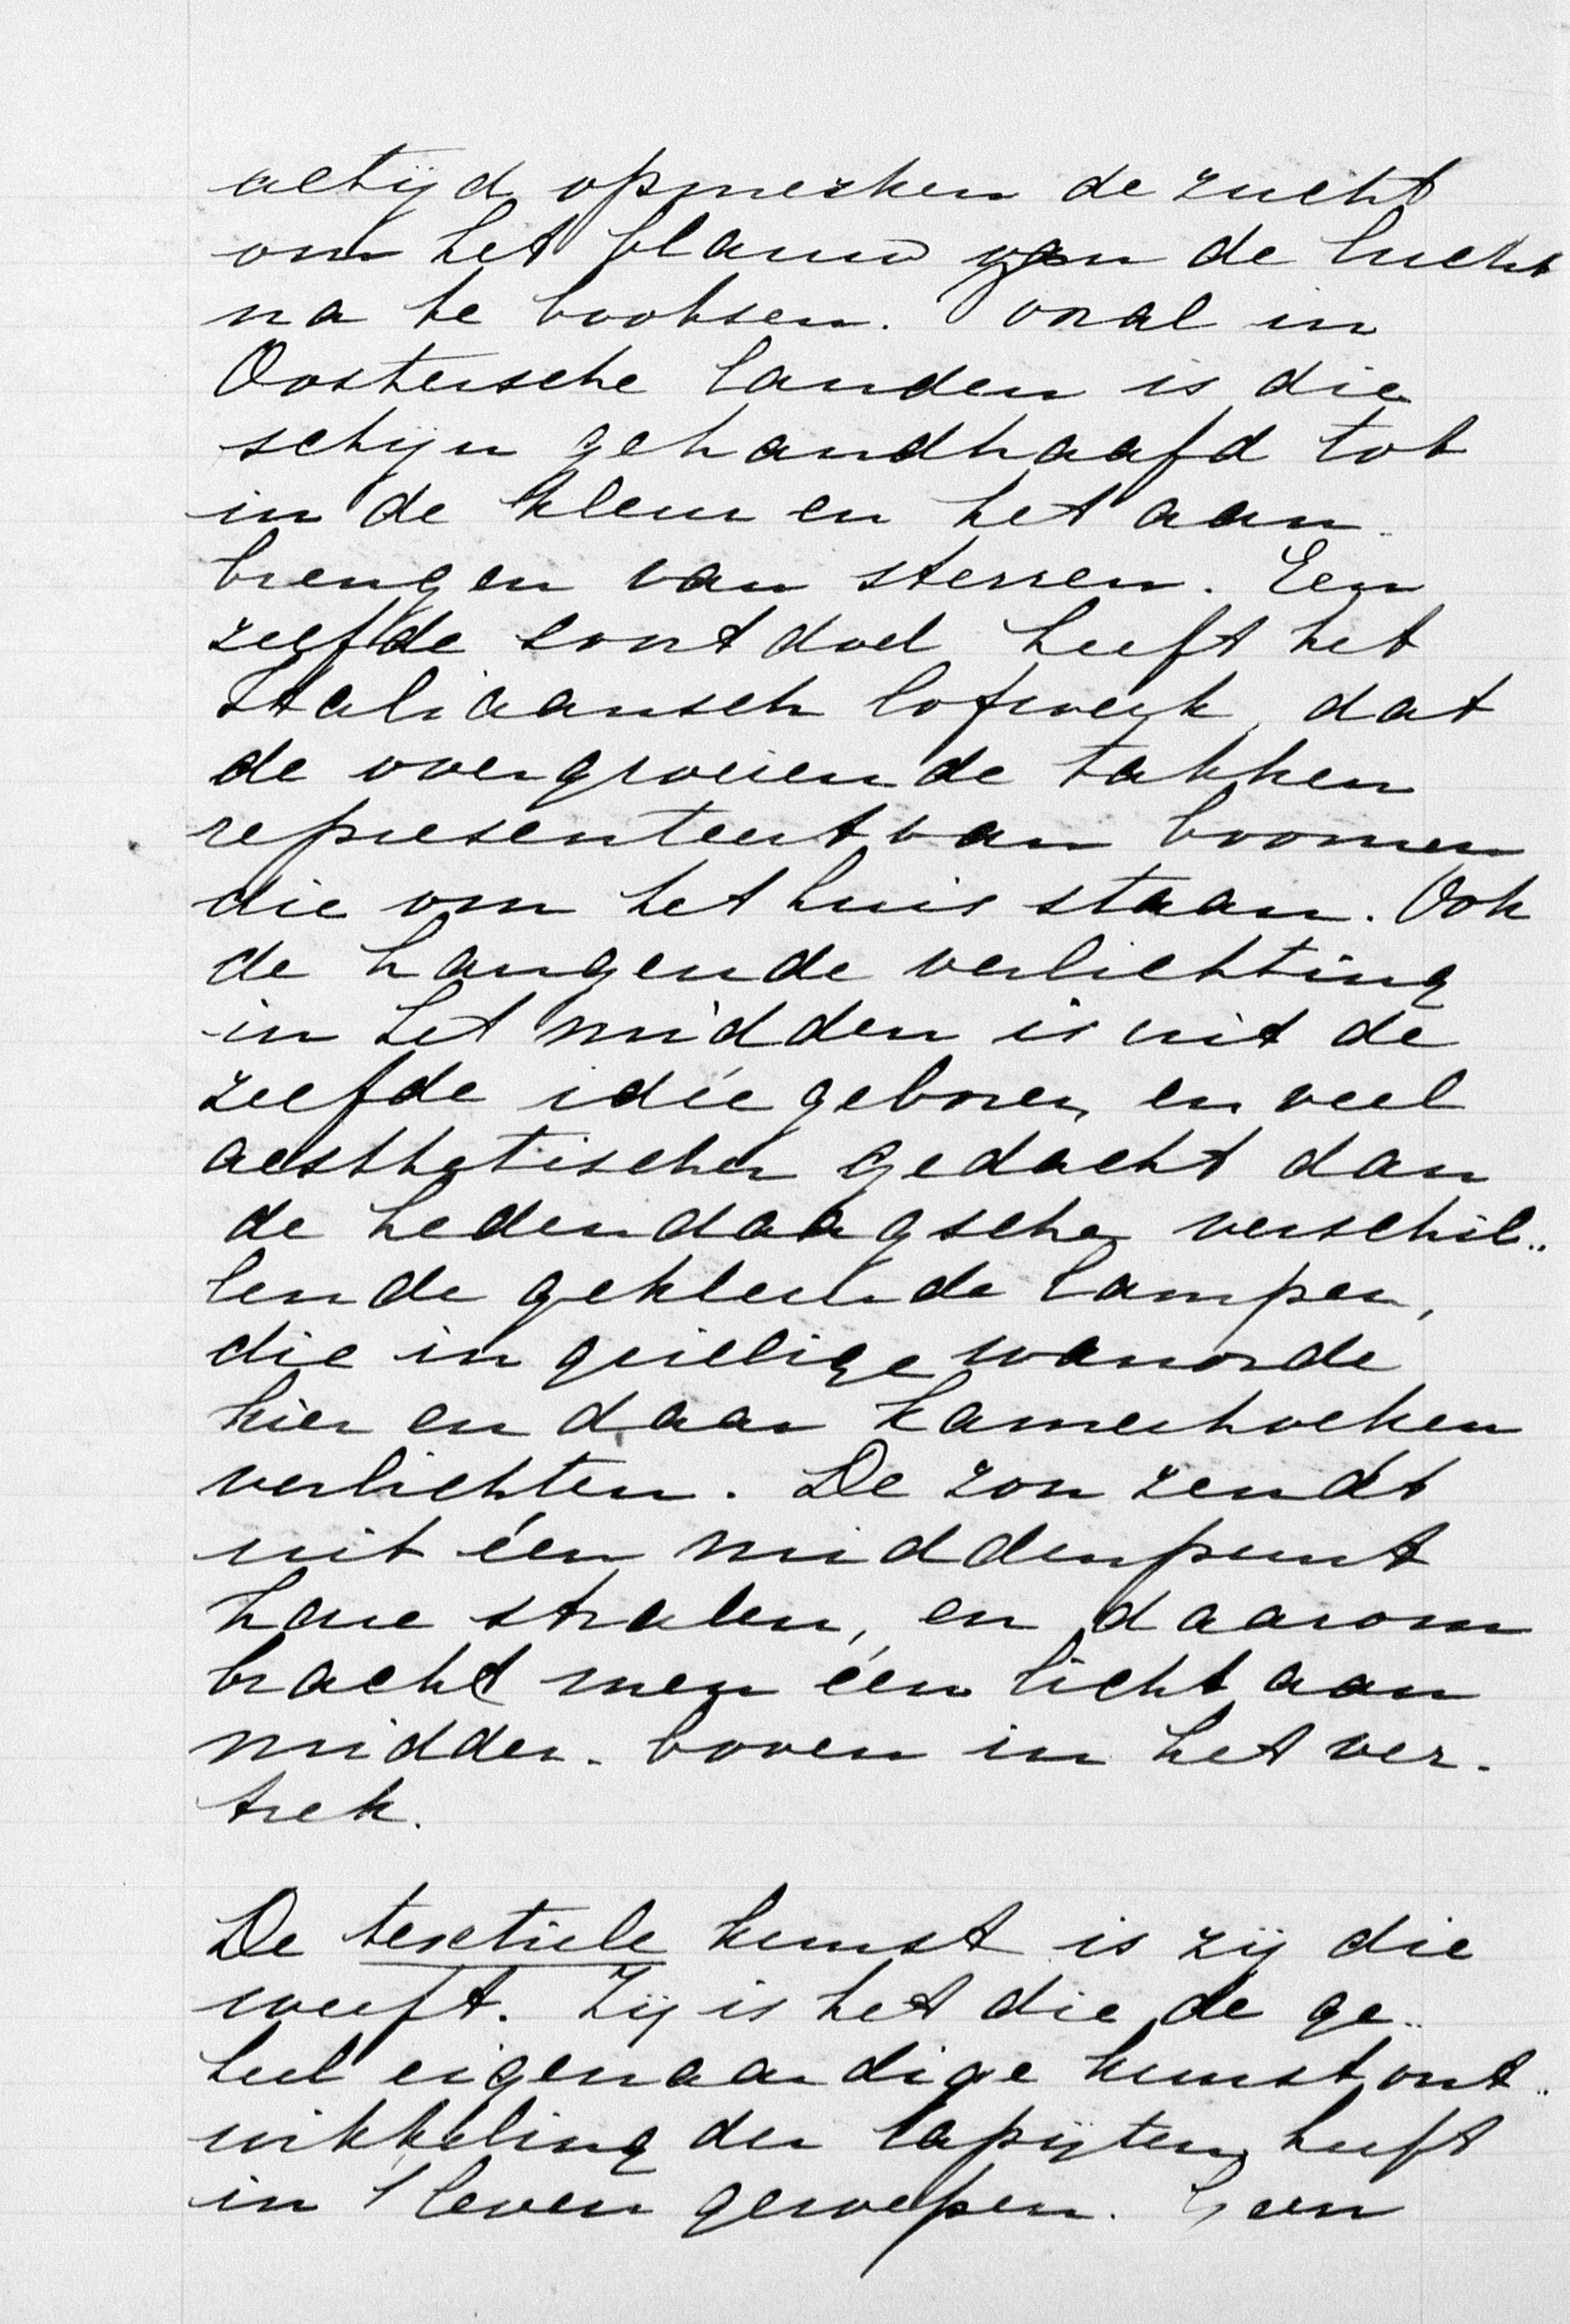 altijd opmerken de zucht
om het blauw van de lucht
na te bootsen. Vooral in
Oostersche landen is die
schijn gehandhaafd tot
in de kleur en het aan-
brengen van sterren. Een
zelfde soort doel heeft het
Italiaansch lofwerk, dat
de overgroeiende takken
representeert van boomen
die om het huis staan. Ook
de hangende verlichting
in het midden is uit de
zelfde idée geboren, en veel
aesthetischer gedacht dan
de hedendaagsche verschil-
lende gekleurde lampen,
die in grillige wanorde
hier en daar kamerhoeken
verlichten. De zon zendt
uit één middenpunt
hare stralen, en daarom
bracht men één licht aan
midden-boven in het ver-
trek.

De textiele kunst is zij die
weeft. Zij is het die de ge-
heel eigenaardige kunstont-
wikkeling der tapijten heeft
in 't leven geroepen. Geen